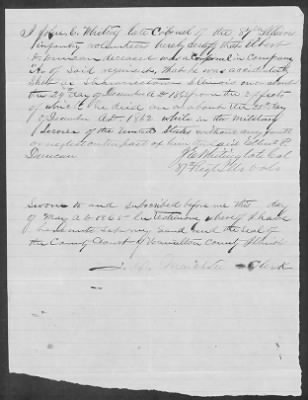 I John C. Whiting late Colonel of the 87th Illinois
infantry volunteers hereby certify that Elbert
P. Duncan deceased was a Corporal in Company
A of said regiment, that he was accidentally
shot at Shawneetown Illinois on or about
the 24th day of December A.D. 1862 from the effects
of which he died on or about the day
of December A.D. 1862 while in the military
Service of the United States without any fault
or neglect on the part of him the said Elbert P.
Duncan
J. C. Whiting late Col
87th Regt Ills Vols
Sworn to and subscribed before me this day
of May A.D. 1865 In testimony whereof I have
hereunto set my hand and the Seal of
the County Court of Hamilton County Illinois
Clerk